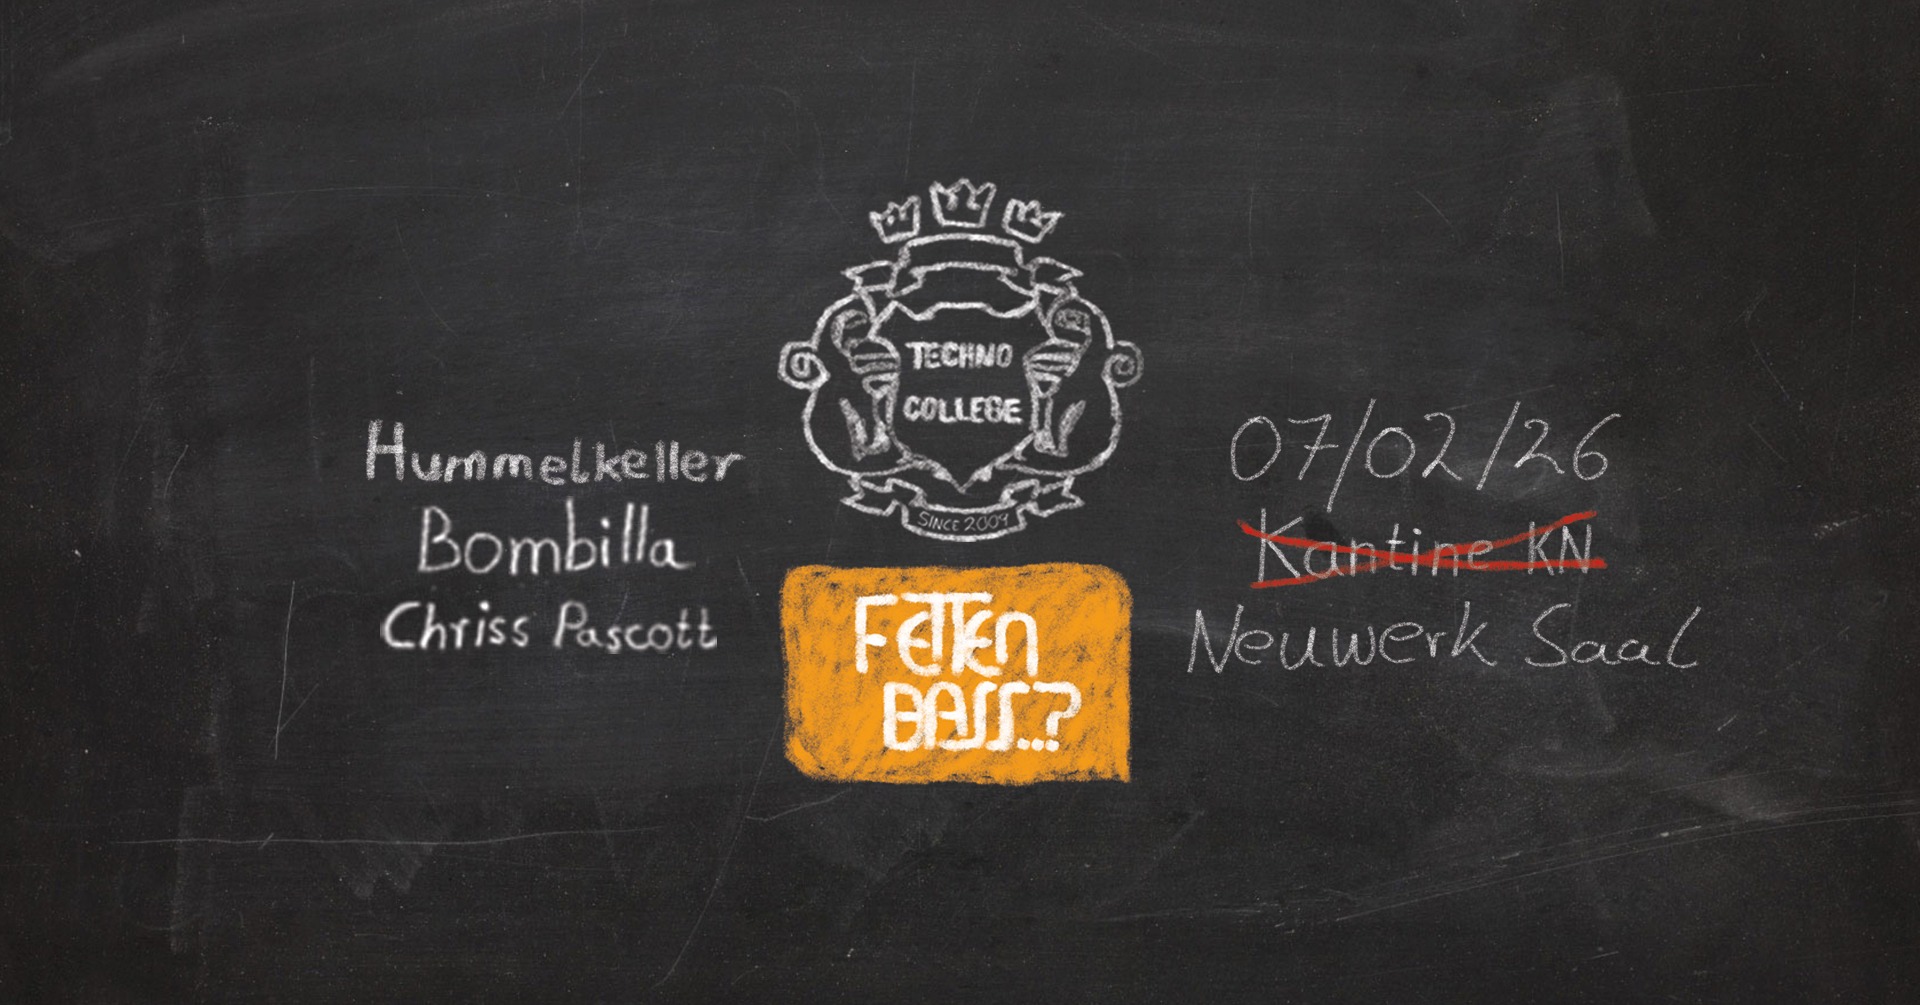 Hummelkeller
Bombilla
Chriss Pascott
TECHNO
COLLEGE
SINCE 2009
FETTEN
BASS...?
07/02/26
Kantine KN
Neuwerk Saal